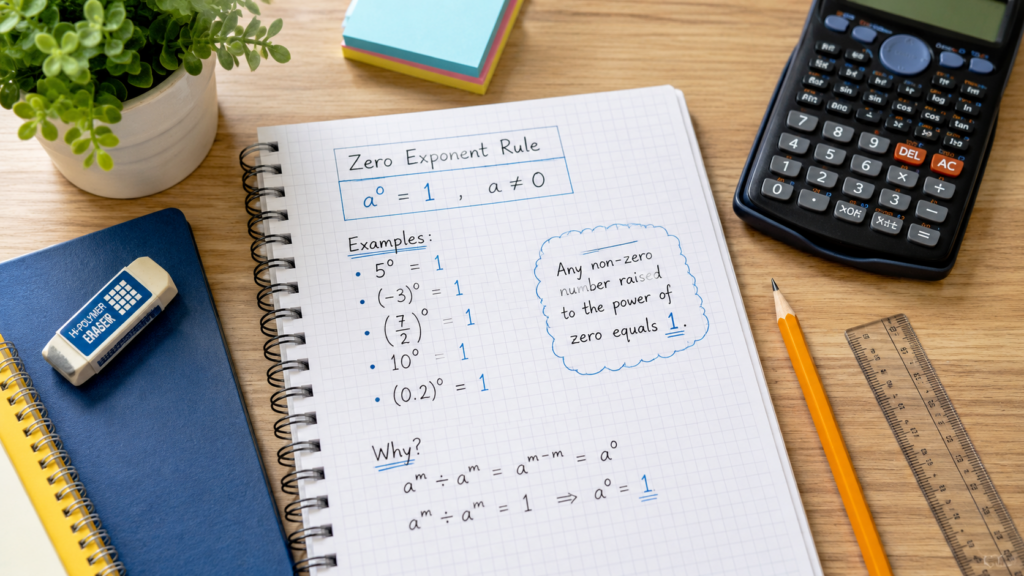 Zero Exponent Rule
a⁰ = 1 , a ≠ 0
Examples:
• 5⁰ = 1
• (−3)⁰ = 1
• (7/2)⁰ = 1
• 10⁰ = 1
• (0.2)⁰ = 1
Any non-zero
number raised
to the power of
zero equals 1.
Why?
aᵐ ÷ aᵐ = aᵐ⁻ᵐ = a⁰
aᵐ ÷ aᵐ = 1 ⇒ a⁰ = 1
HI-POLYMER
ERASER
sin
cos
tan
7 8 9 DEL AC
4 5 6 × +
1 2 3 −
0 · =